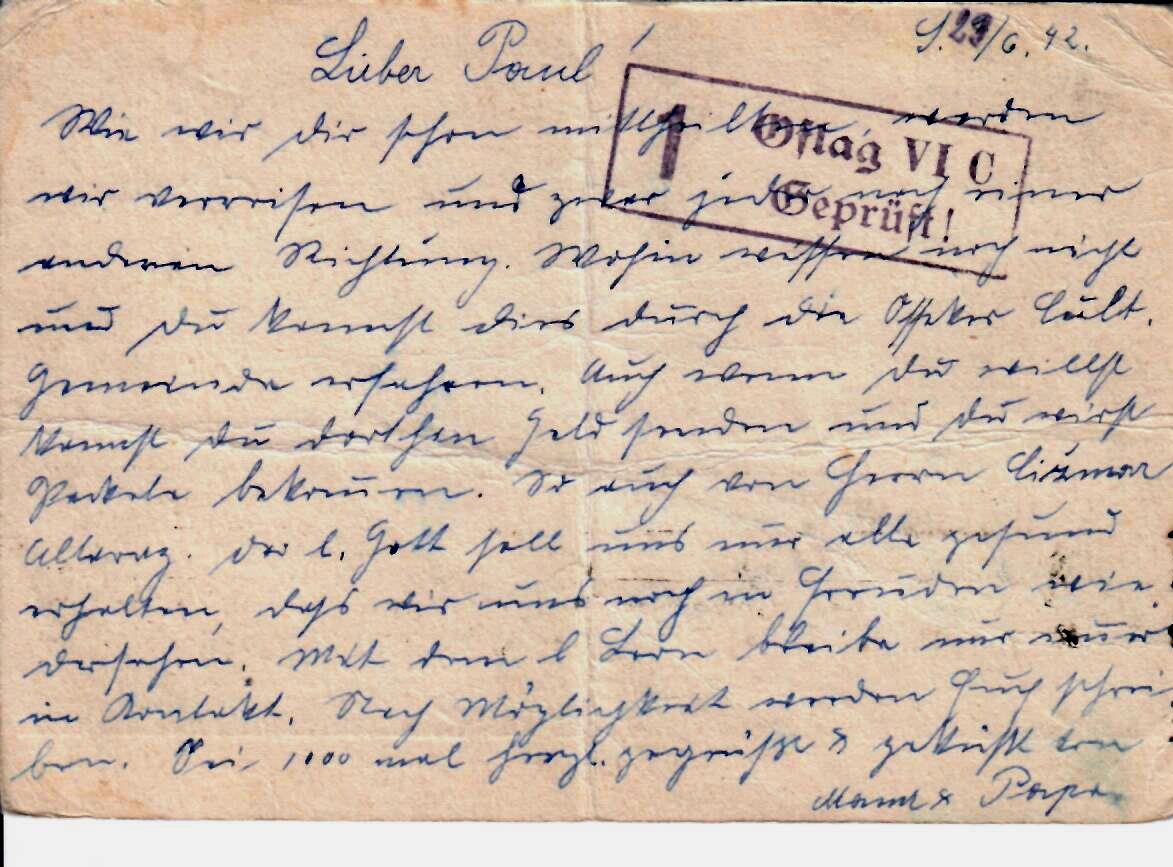 S. 29/6. 42.
Lieber Paul!
1 Oflag VI C
Geprüft!
Wie wir dir schon mittheilten, werden
wir verreisen und zwar jeder nach einer
anderen Richtung. Wohin wissen noch nicht
und du kannst dies durch die Osijeker Cult.
Gemeinde erfahren. Auch wenn du willst
kannst du dorthin Geld senden und du wirst
Pakete bekommen. So auch von Herrn
Altarag. Der l. Gott soll uns nur alle gesund
erhalten, dass wir uns noch in Freuden wie
dersehen. Mit dem l bleibe nur
in Kontakt. Nach Möglichkeit werden Euch schrei
ben. Sei 1000 mal herzl. gegrüßt & geküßt von
Mama & Papa